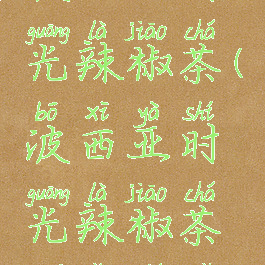 guāng là jiāo chá
光辣椒茶(
bō xī yà shí
波西亚时
guāng là jiāo chá
光辣椒茶